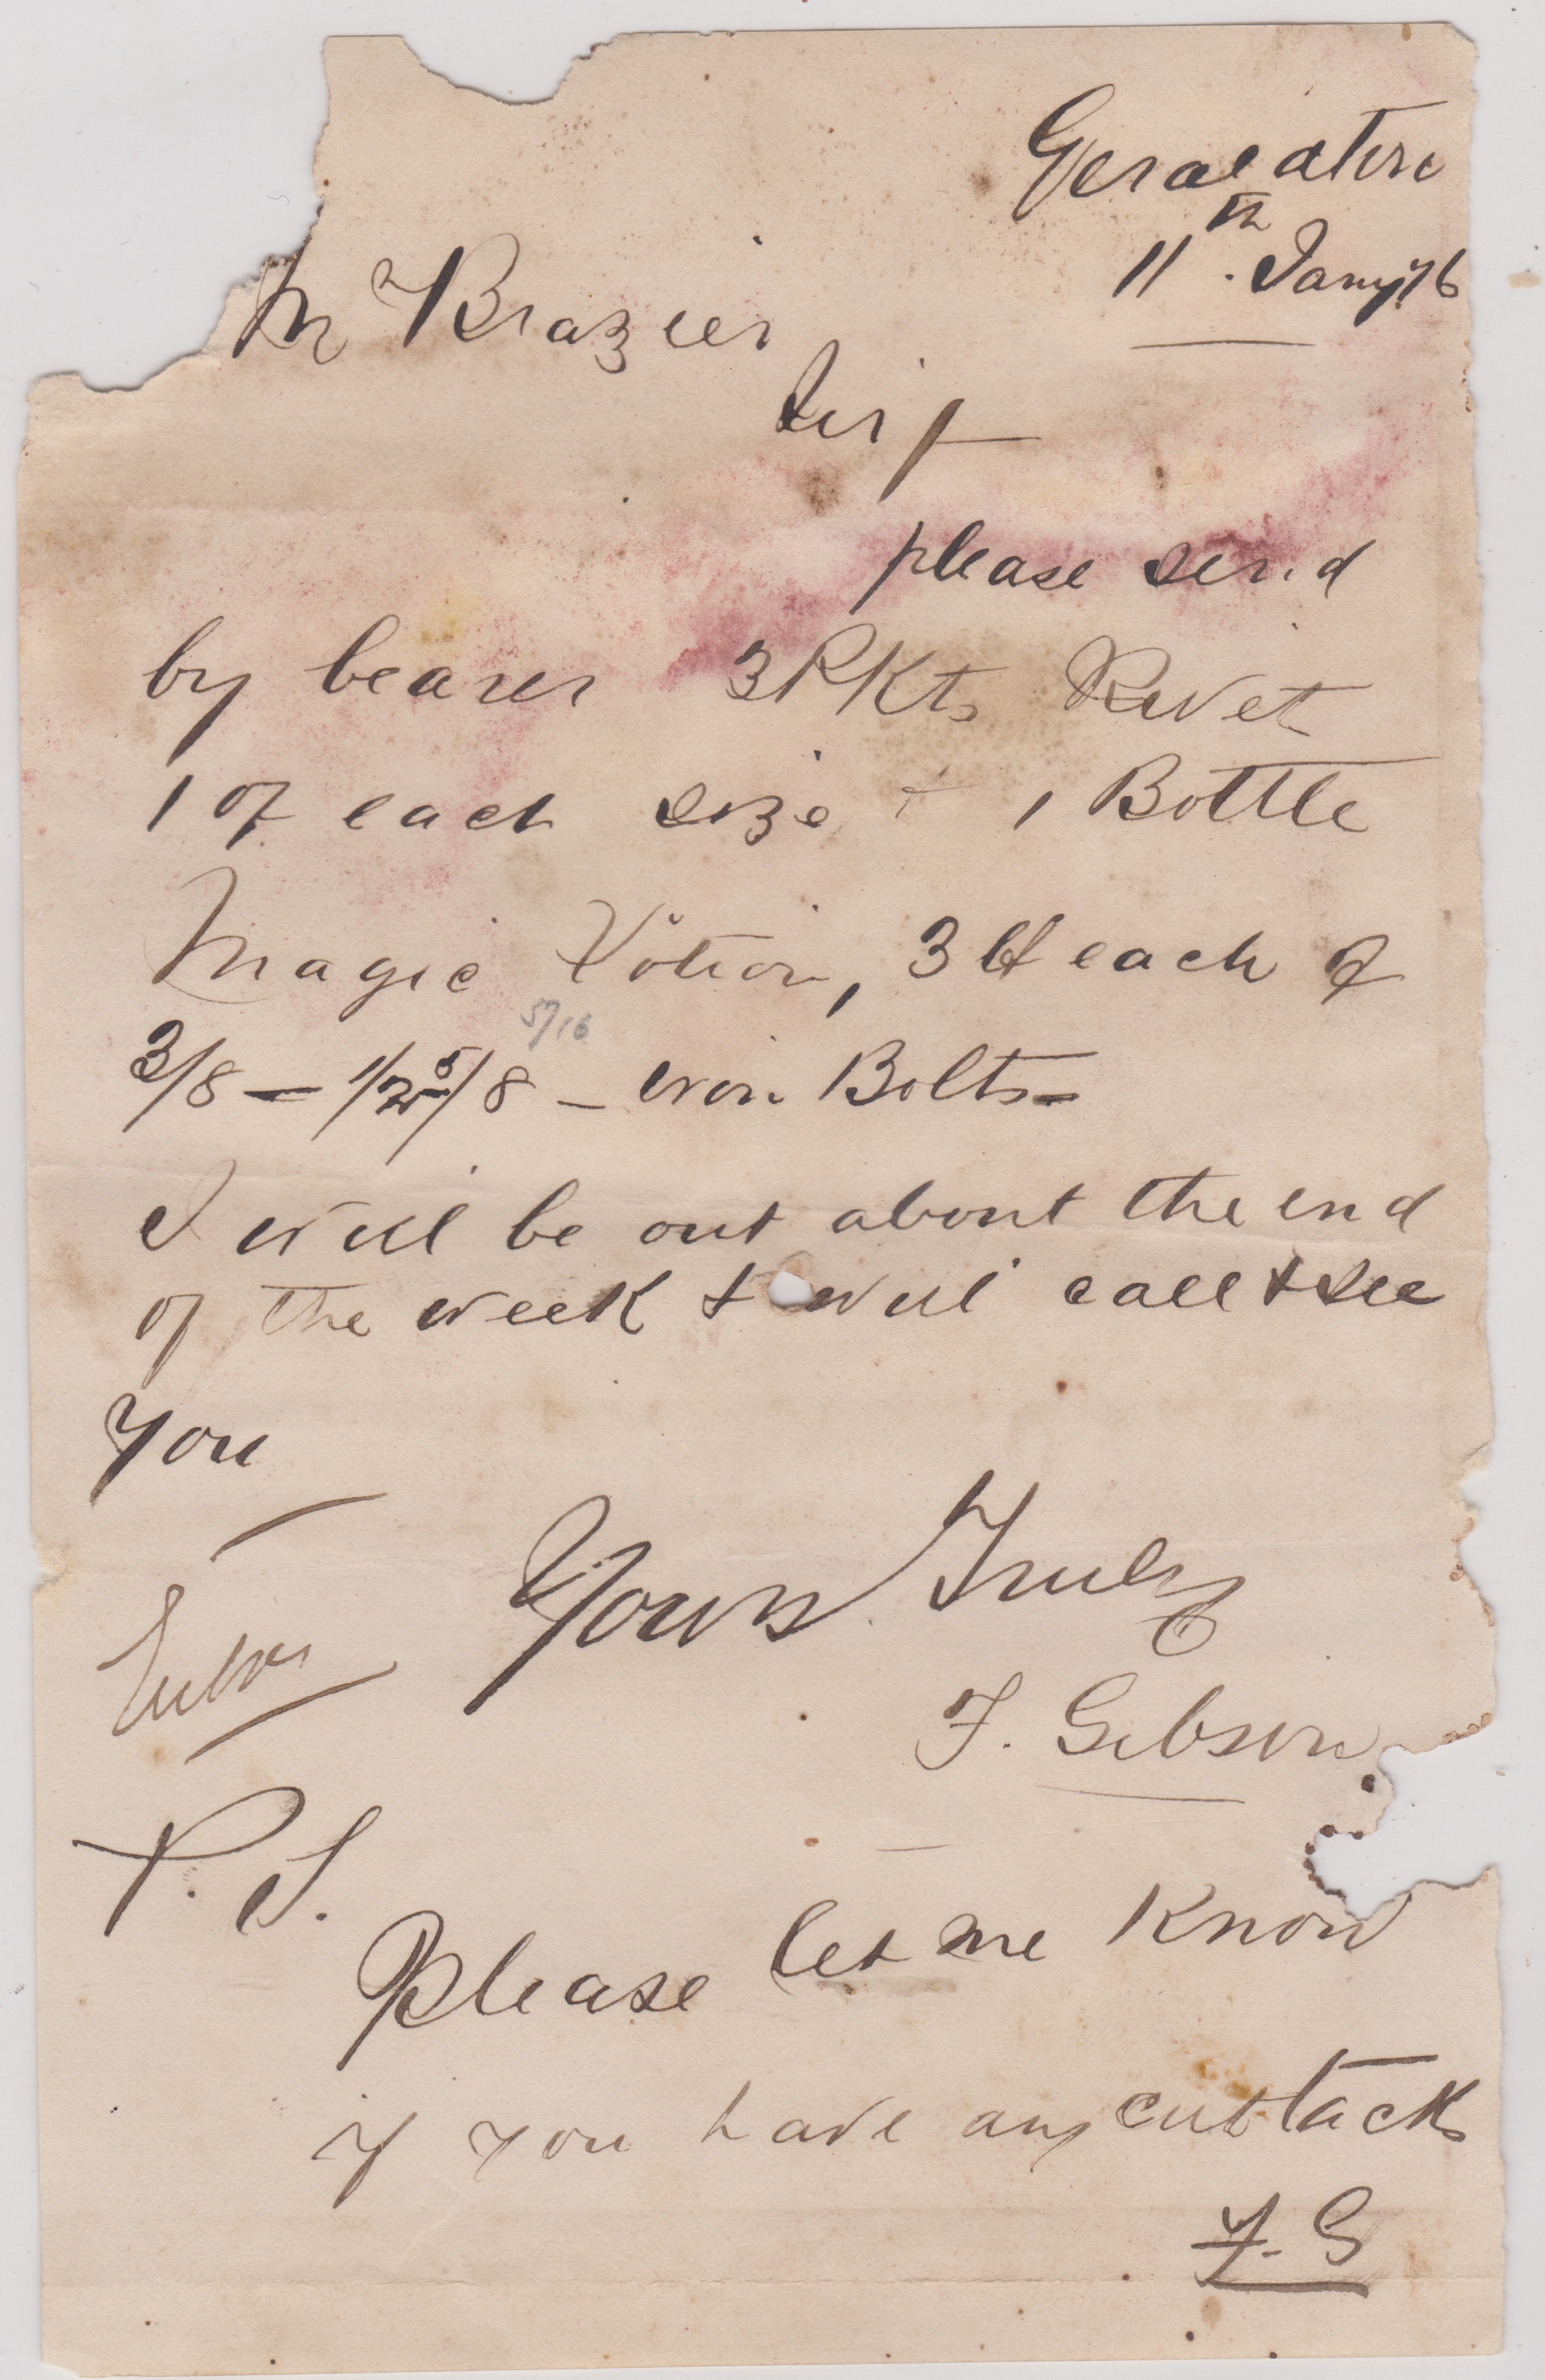 Geraldine
11th. Jany 76
Mr Brazier
Sir/
please send
by bearer 3 Pkts Rivet
1 of each size + 1 Bottle
Magic Potion, 3 ft each of
5/16
3/8 – 1/2 5/8 – iron Bolts –
I will be out about the end
of the week + will call + see
you
Yours Truly
F. Gibson
P.S.
Please let me know
if you have any cut tacks
F. G